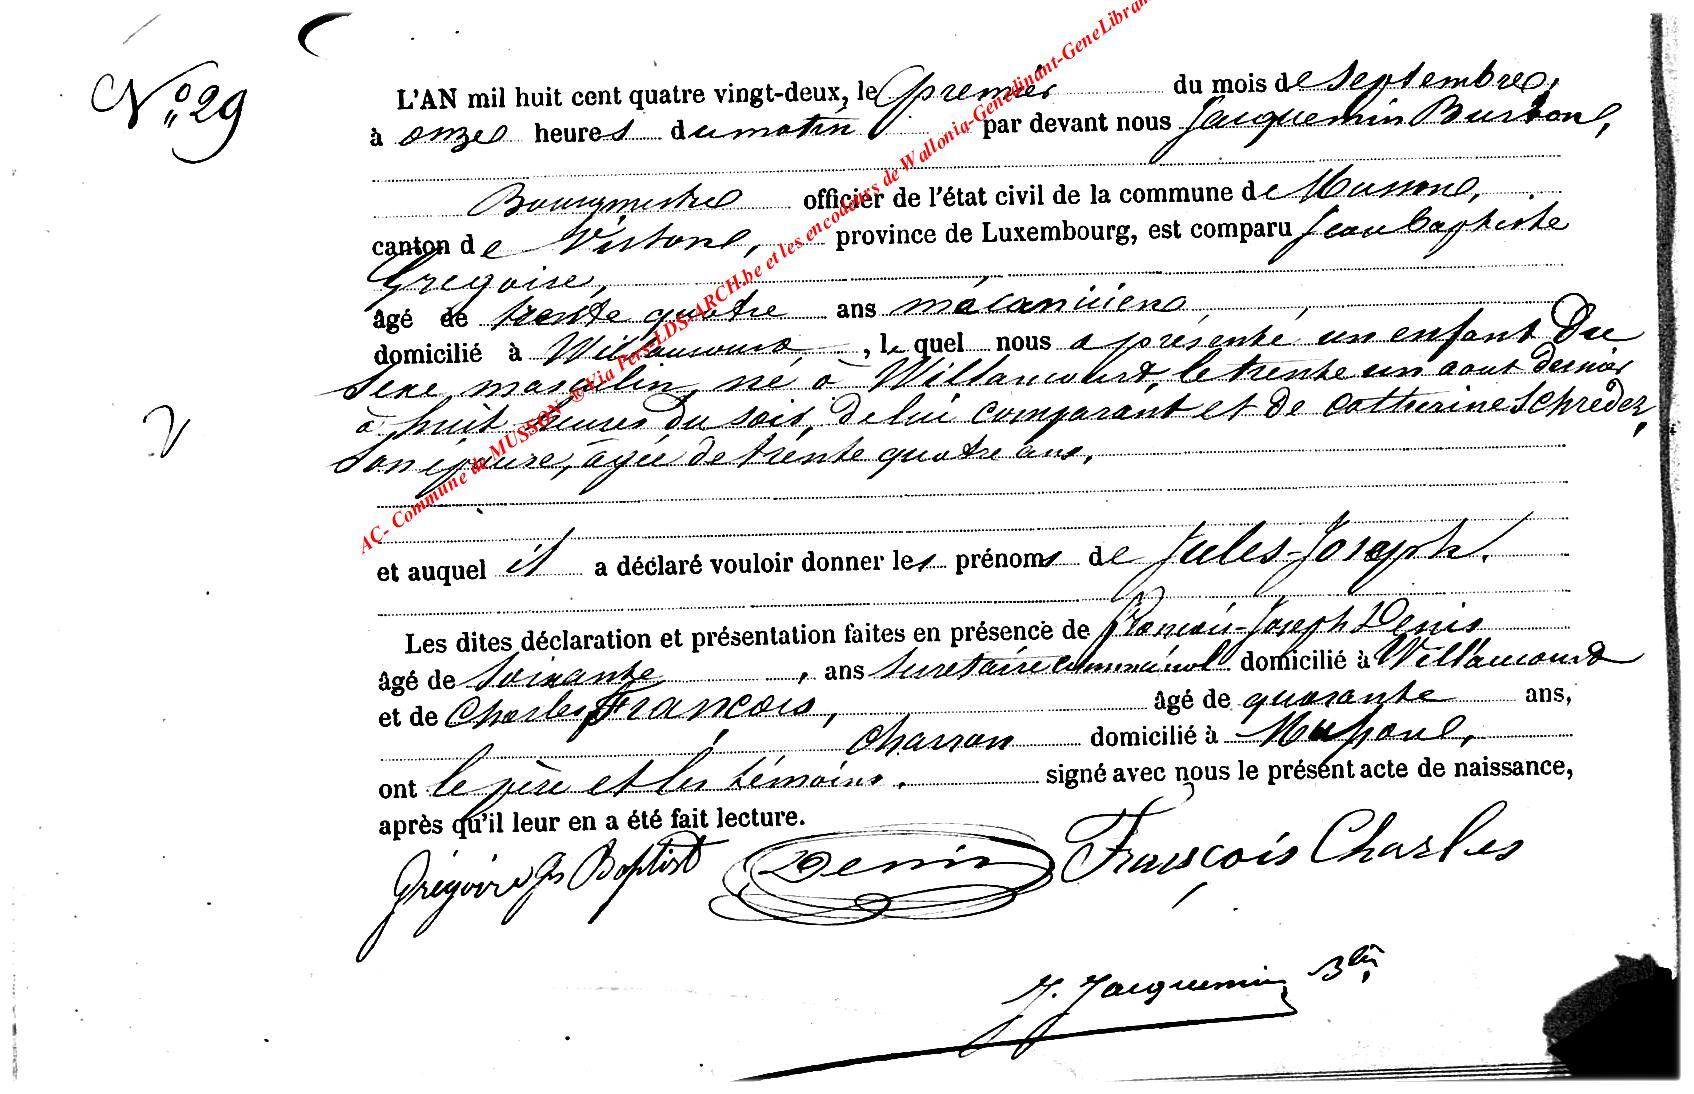 N° 29
L'AN mil huit cent quatre vingt-deux, le premier du mois de septembre,
à onze heures du matin par devant nous Jacquemin
Bourgmestre officier de l'état civil de la commune de Musson,
canton de Virton, province de Luxembourg, est comparu Jean Baptiste
Grégoire,
âgé de trente quatre ans mécanicien
domicilié à Willancourt, le quel nous a présenté un enfant du
sexe masculin, né à Willancourt, le trente un aout dernier
à huit heures du soir, de lui comparant et de catherine Schreder,
son épouse, âgée de trente quatre ans.
et auquel il a déclaré vouloir donner les prénoms de Jules-Joseph.
Les dites déclaration et présentation faites en présence de François-Joseph Denis
âgé de soixante, ans secretaire communal domicilié à Willancourt
et de Charles François, âgé de quarante ans,
charron domicilié à Musson,
ont le père et les témoins. signé avec nous le présent acte de naissance,
après qu'il leur en a été fait lecture.
Grégoire Jn Baptist Denis François Charles
J. Jacquemin
AC- Commune de MUSSON ©Via Pers-LDS-ARCH.be et les encodeurs de Wallonia-Genedinant-GeneLibran